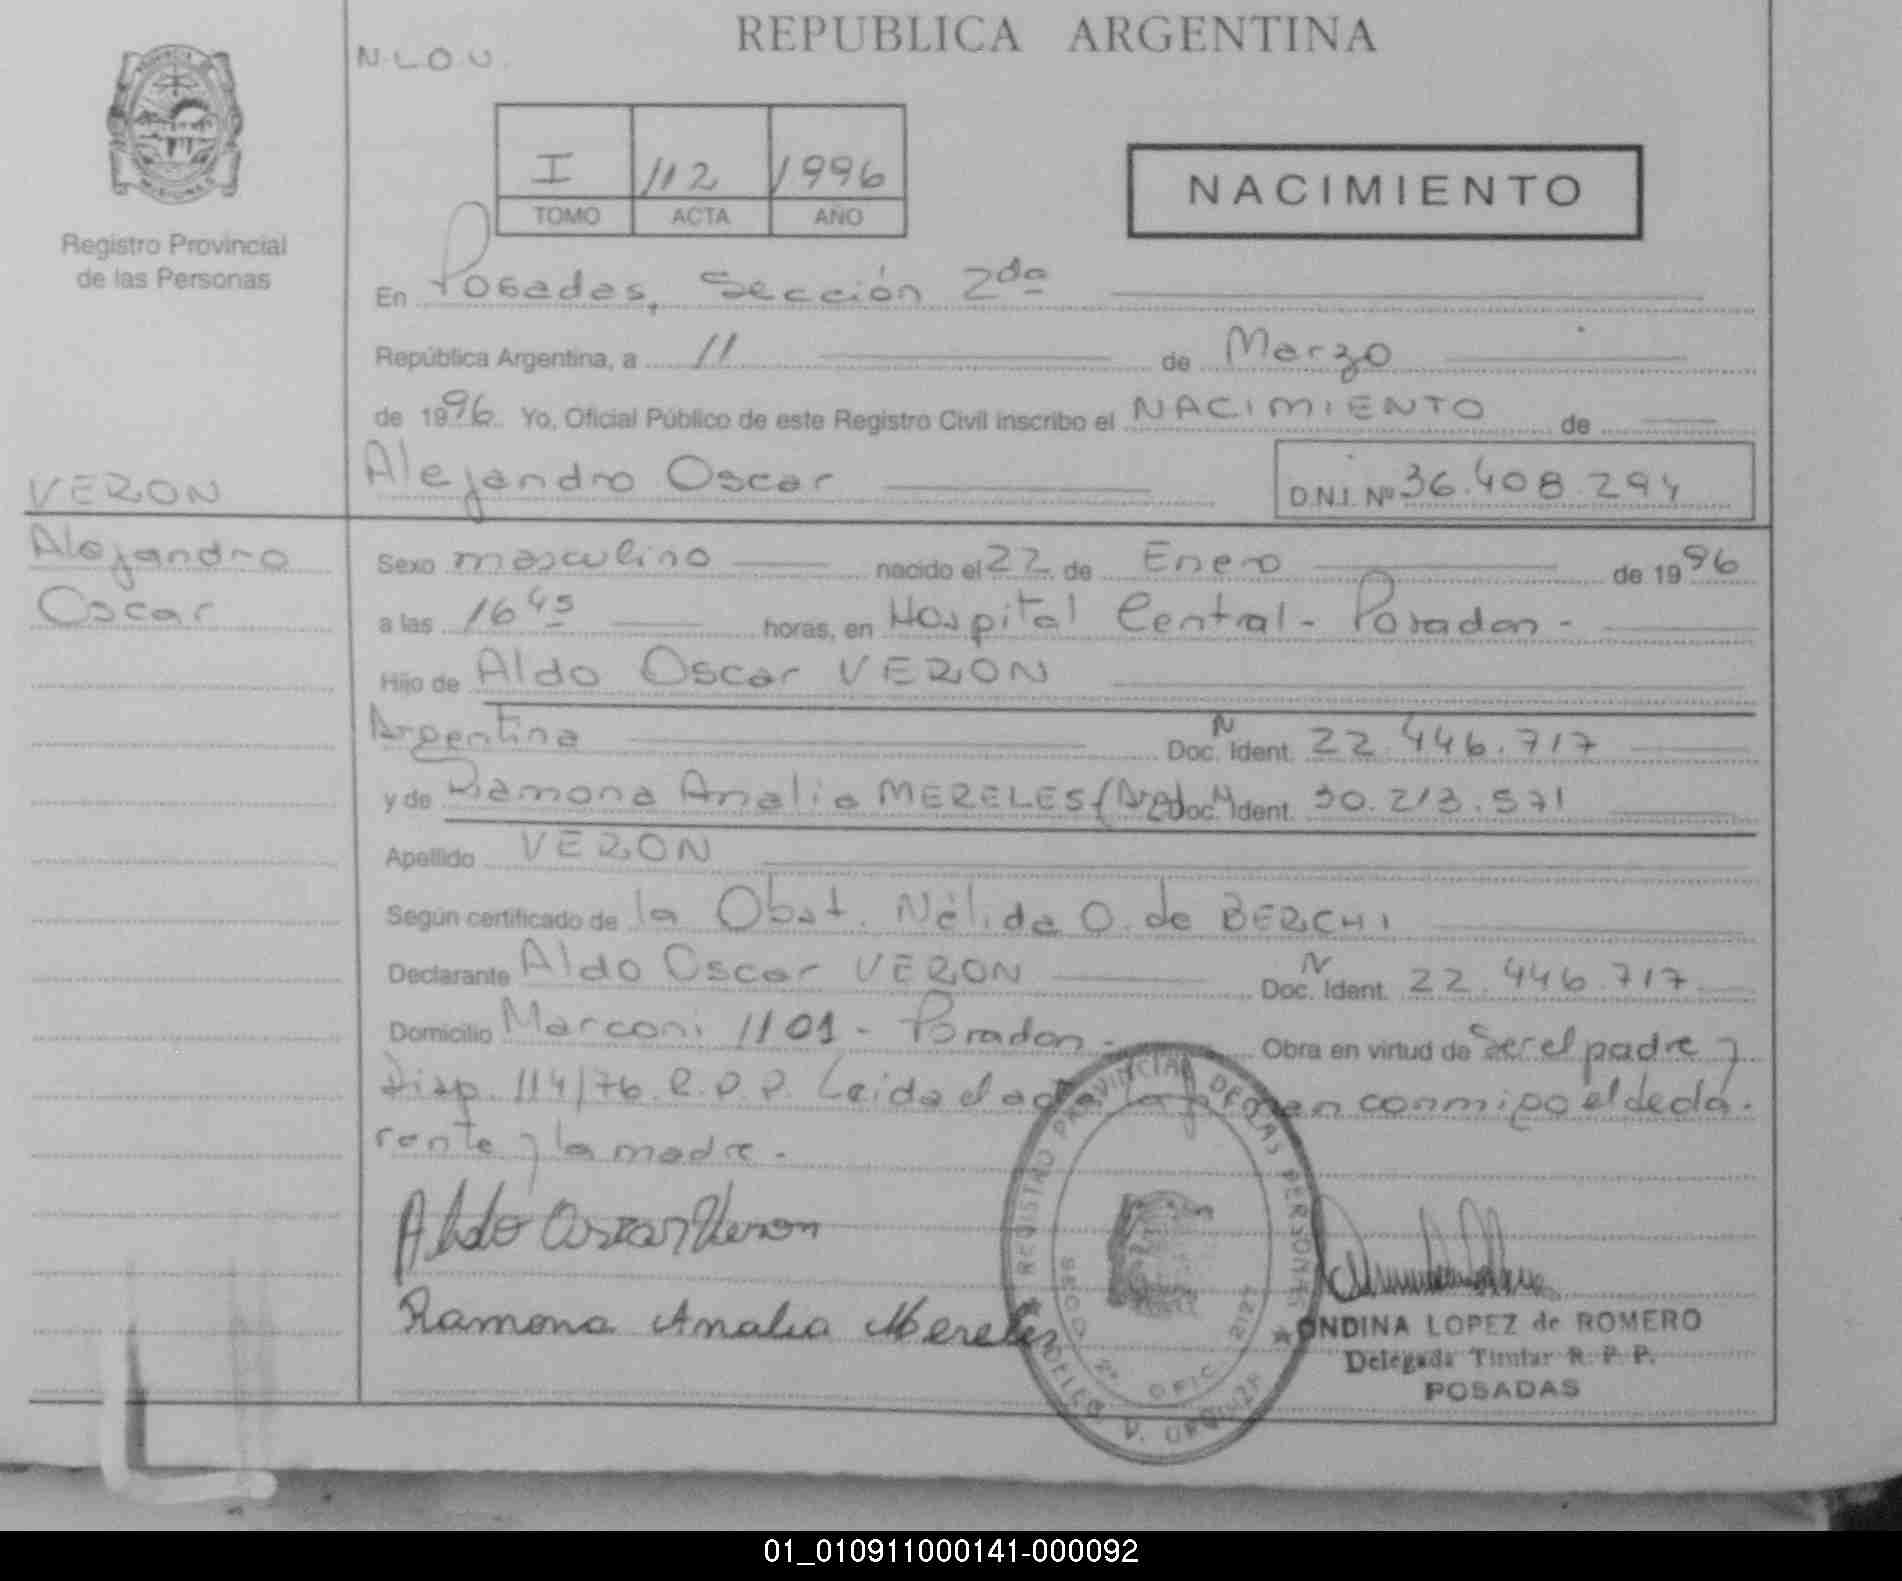 REPUBLICA ARGENTINA
N.L.O.U.
PROVINCIA
MISIONES
Registro Provincial
de las Personas
I 112 1996
TOMO ACTA AÑO
NACIMIENTO
En Posadas, Sección 2da
República Argentina, a 11 de Marzo
de 1996 Yo, Oficial Público de este Registro Civil inscribo el NACIMIENTO de
Alejandro Oscar D.N.I. Nº 36.408.294
VERON
Alejandro
Oscar
Sexo masculino nacido el 22 de Enero de 1996
a las 16 45 horas, en Hospital Central - Posadas -
Hijo de Aldo Oscar VERON
Argentina Doc. N Ident. 22.446.717
y de Ramona Analia MERELES (Arg) Doc. N Ident. 30.213.571
Apellido VERON
Según certificado de la Obst. Nélida O. de BERCHI
Declarante Aldo Oscar VERON Doc. N Ident. 22.446.717
Domicilio Marconi 1101 - Posadas - Obra en virtud de Ser el padre y
Disp. 114/76 R.P.P. Leida el acta la firman conmigo el decla.
rante y la madre.
Aldo Oscar Veron
Ramona Analia Mereles
REGISTRO PROVINCIAL DE LAS PERSONAS
SECC. 2ª OFIC. 2127
DELEG. V. URQUIZA
ONDINA LOPEZ de ROMERO
Delegada Titular R. P. P.
POSADAS
01_010911000141-000092